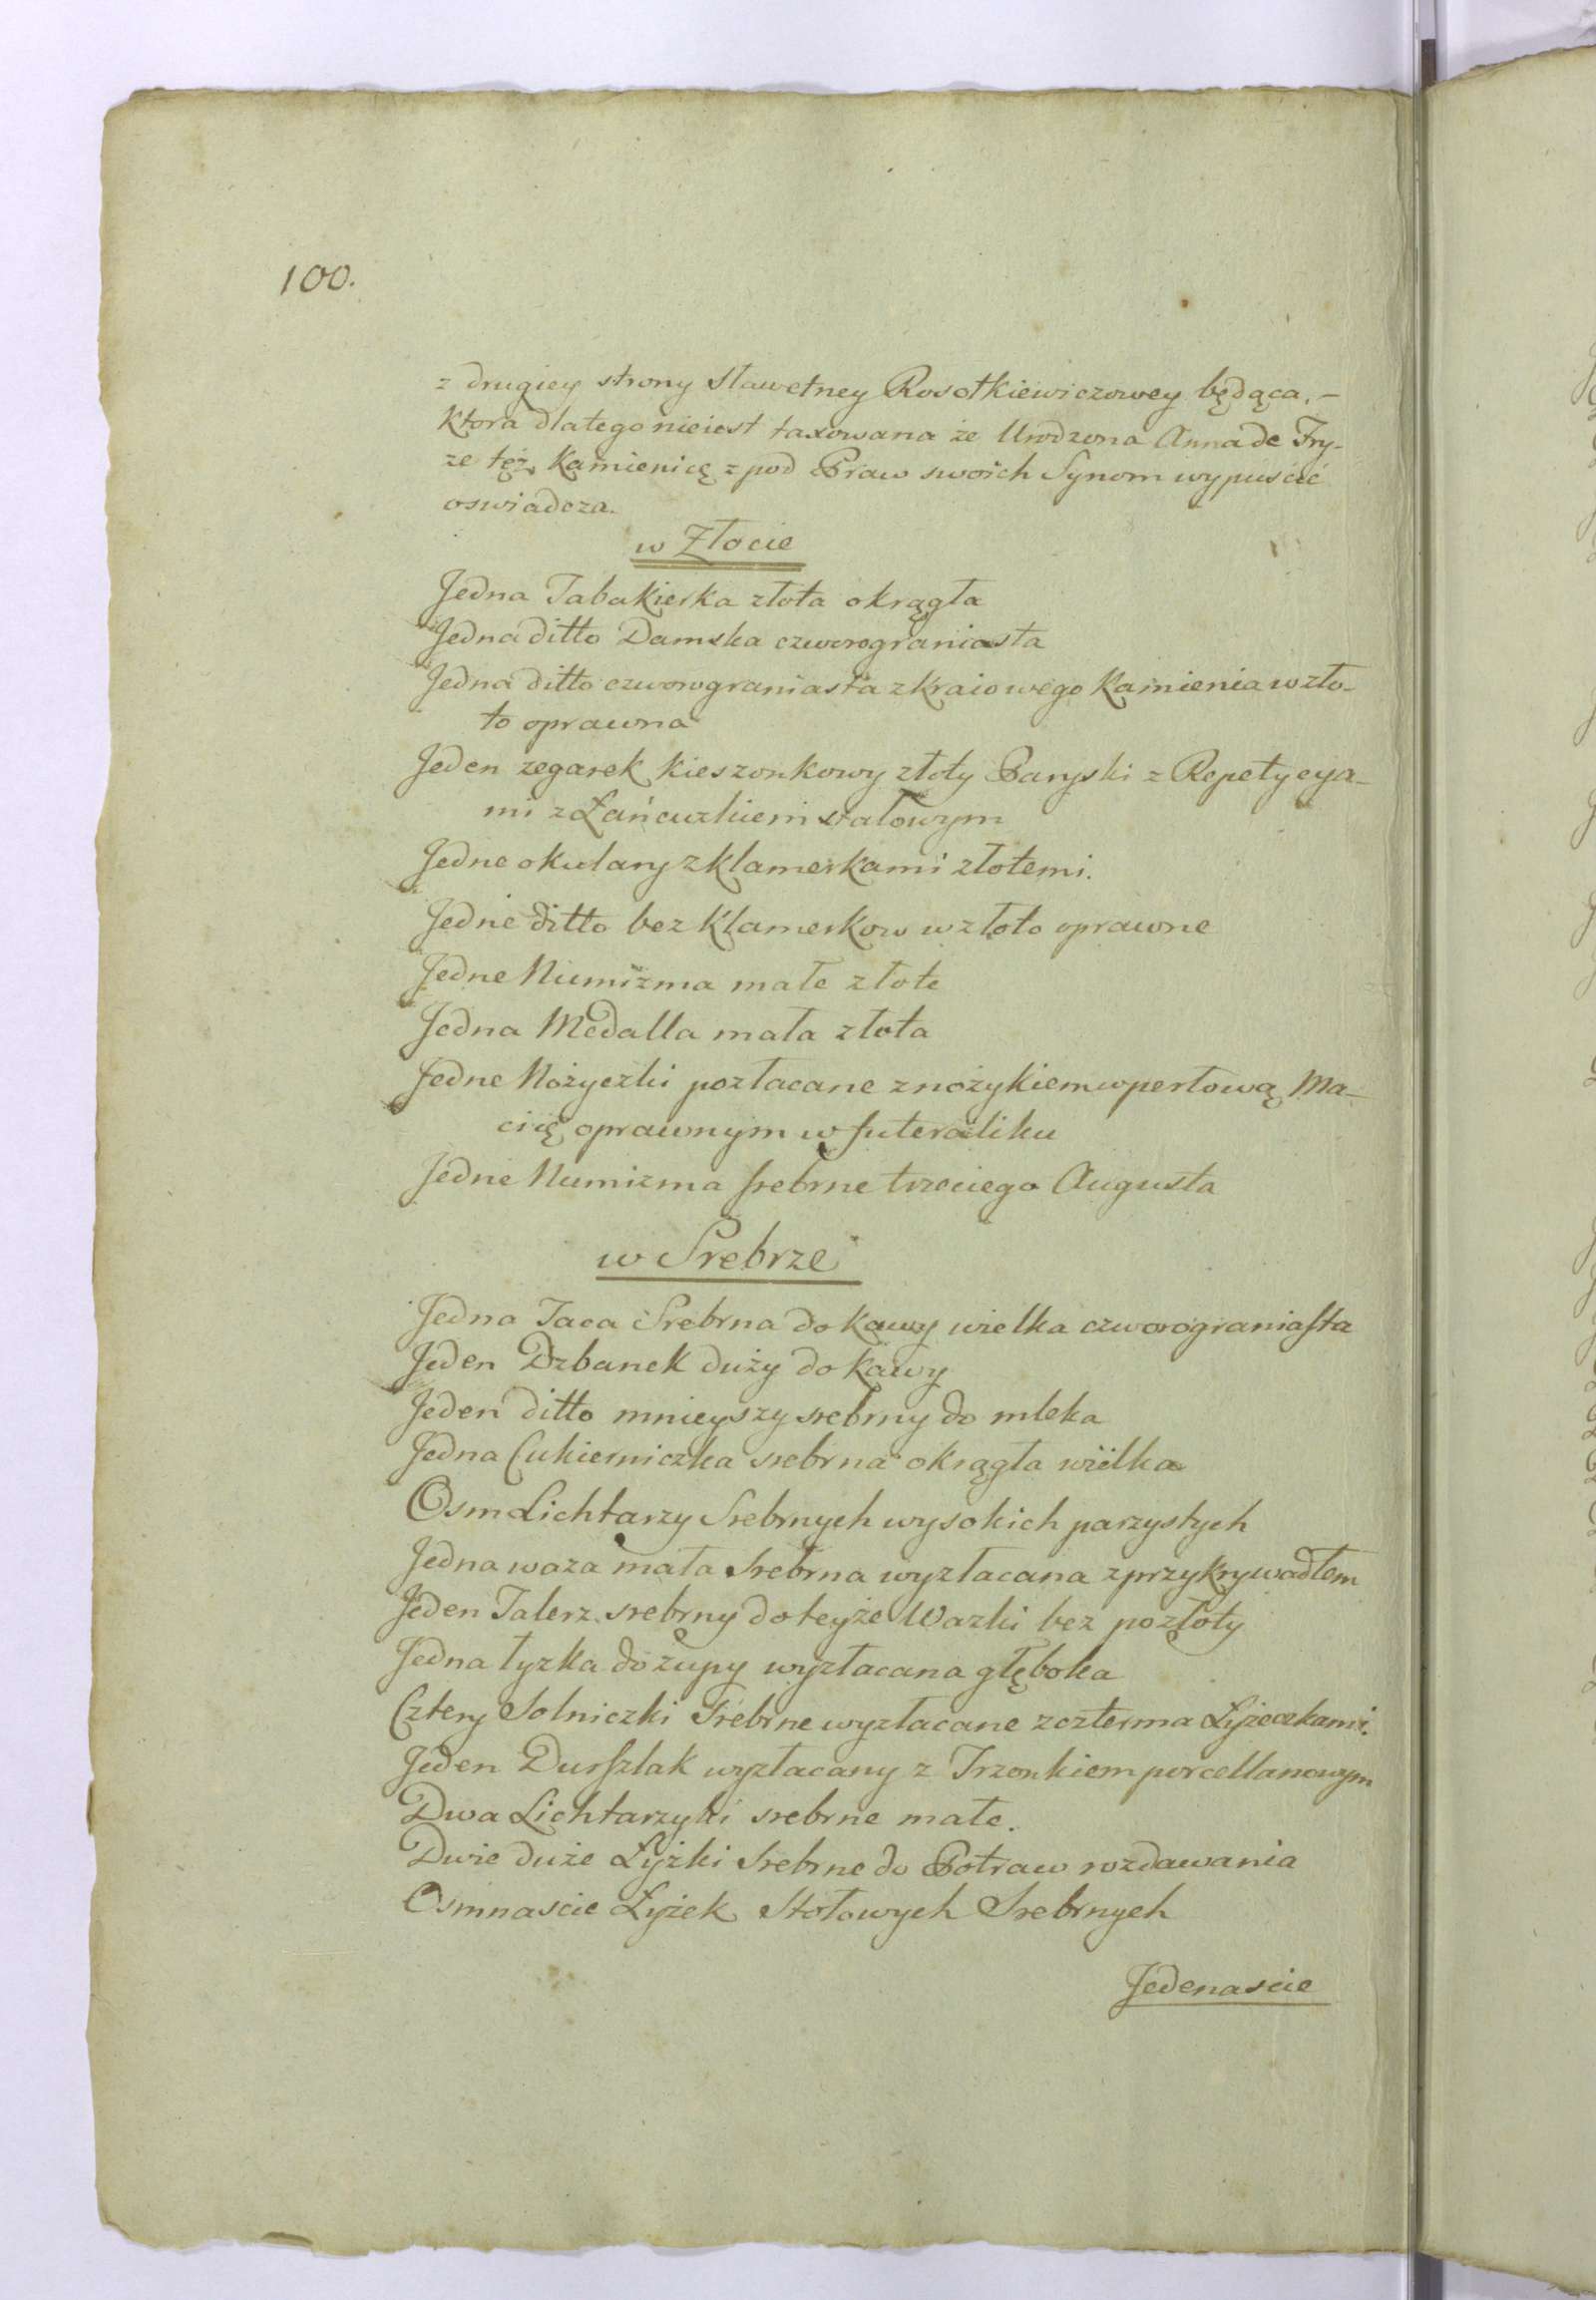 100.
z drugiey strony Sławetney Rosołkiewiczowey będąca, –
ktora dlatego nieiest taxowana że Urodzona Anna de Fry-
ze tęż Kamienicę z pod Praw swoich Synom wypuścić
oswiadcza.
w Złocie
Jedna Tabakierka złota okrągła
Jedna ditto Damska czworograniasta
Jedna ditto czworograniasta z kraiowego Kamienia w zło-
to oprawna
Jeden zegarek kieszonkowy złoty Paryski z Repetycya-
mi z Łańcuzkiem stalowym
Jedne okulary z klamerkami złotemi.
Jedne ditto bez klamerkow w złoto oprawne
Jedne Numizma małe złote
Jedna Medalla mała złota
Jedne Nożyczki pozłacane z nożykiem w perłową Ma-
cicę oprawnym w futeraliku
Jedne Numizma srebrne trzeciego Augusta
w Srebrze
Jedna Taca Srebrna do kawy wielka czworograniasta
Jeden Dzbanek duży do kawy
Jeden ditto mnieyszy srebrny do mleka
Jedna Cukierniczka srebrna okrągła wielka
Osm Lichtarzy Srebrnych wysokich parzystych
Jedna waza mała Srebrna wyzłacana z przykrywadłem
Jeden Talerz srebrny do teyże Wazki bez pozłoty
Jedna łyzka do zupy wyzłacana głęboka
Cztery Solniczki Srebrne wyzłacane z czterma Łyżeczkami.
Jeden Durszlak wyzłacany z Trzonkiem porcellanowym
Dwa Lichtarzyki srebrne małe.
Dwie duże Łyżki Srebrne do Potraw rozdawania
Osmnascie Łyżek Stołowych Srebrnych
Jedenascie